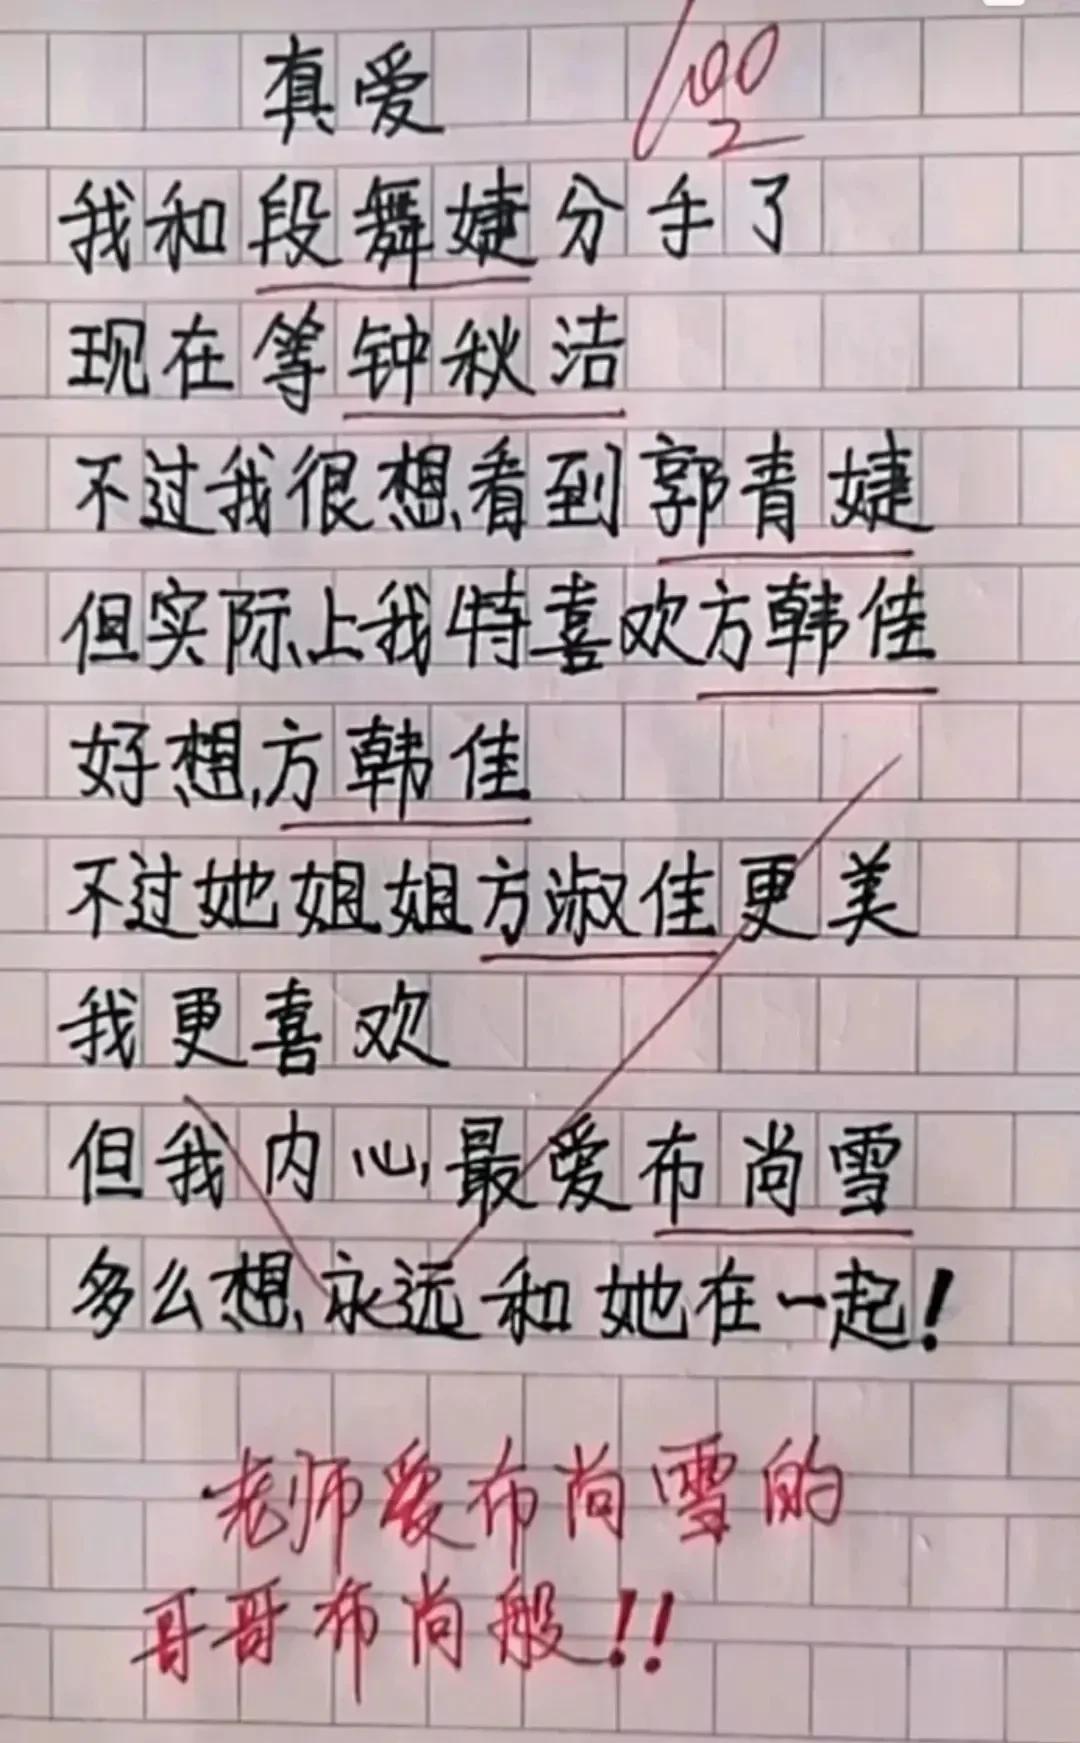 真爱 100
我和段舞婕分手了
现在等钟秋洁
不过我很想看到郭青婕
但实际上我特喜欢方韩佳
好想方韩佳
不过她姐姐方淑佳更美
我更喜欢
但我内心最爱布尚雪
多么想永远和她在一起!
老师爱布尚雪的
哥哥布尚般!!